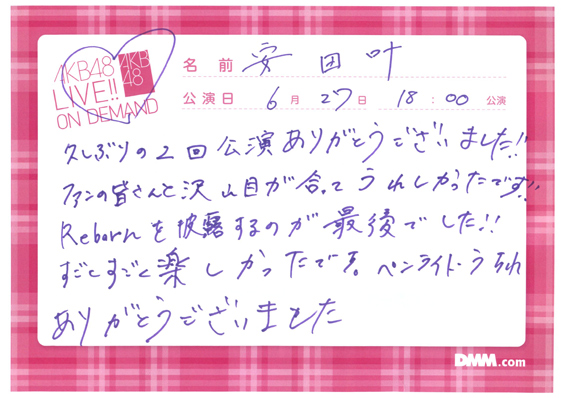 AKB48
LIVE!!
ON DEMAND
AKB
48
名前 安田叶
公演日 6月27日 18:00 公演
久しぶりの2回公演ありがとうございました!!
ファンの皆さんと沢山目が合ってうれしかったです!!
Rebornを披露するのが最後でした!!
すごくすごく楽しかったです。ペンライト・うちわ
ありがとうございました
DMM.com